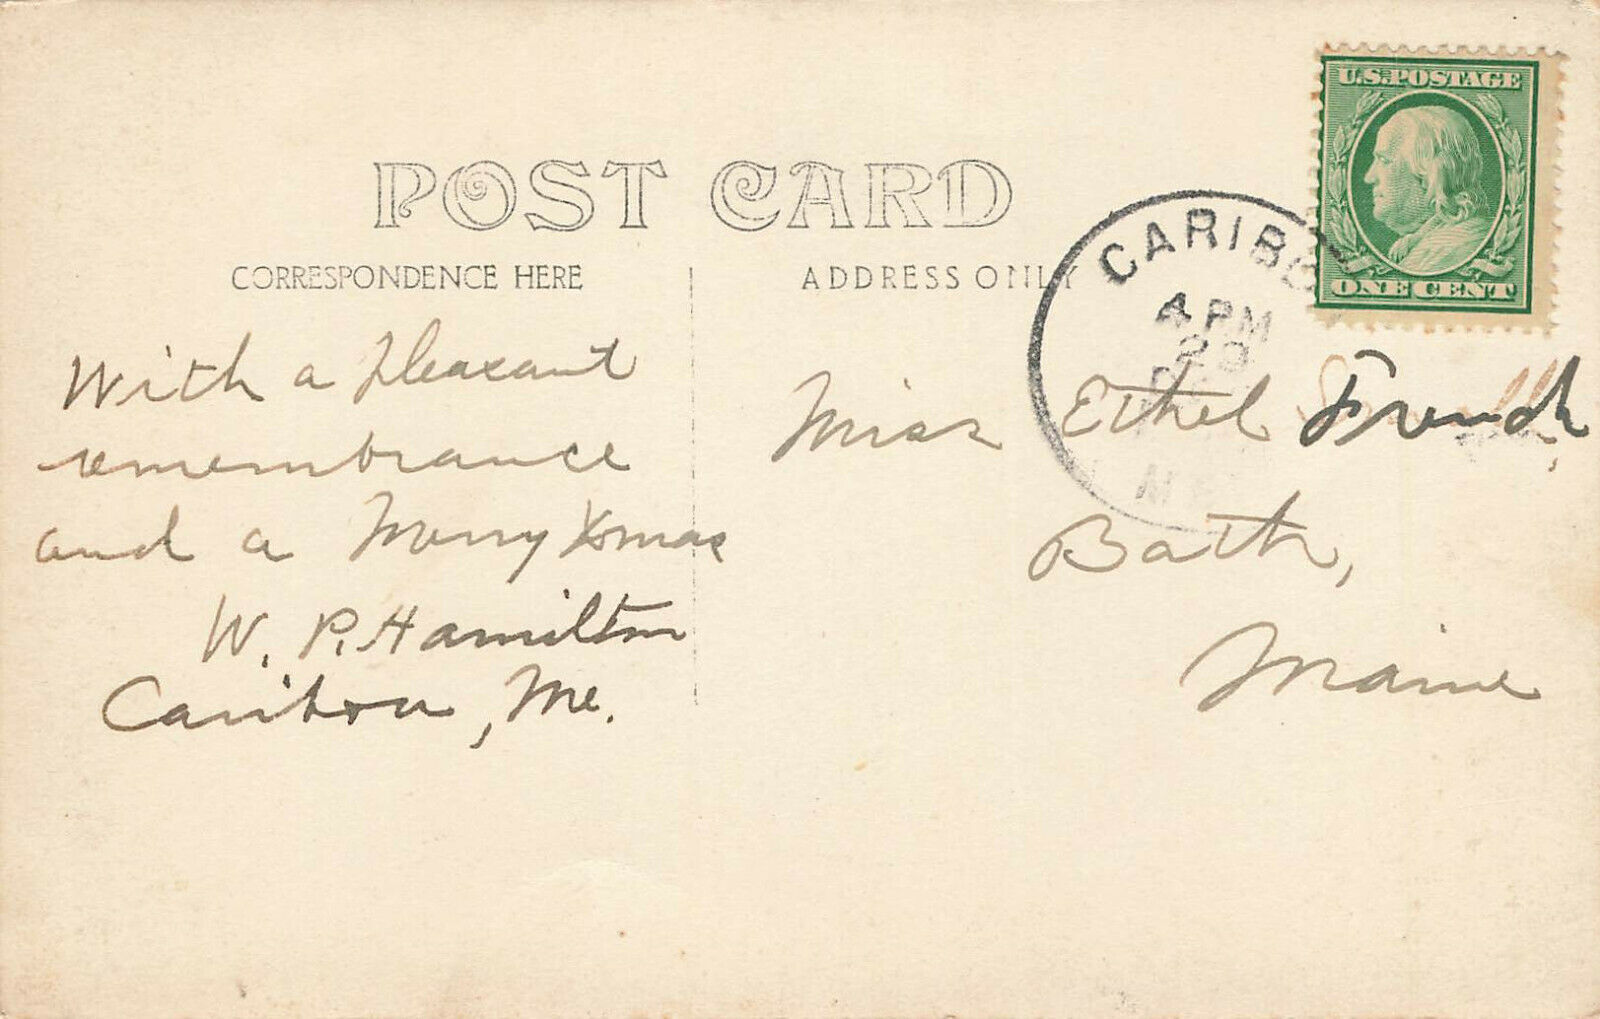 U.S. POSTAGE
POST CARD
CARIBO
CORRESPONDENCE HERE
ADDRESS ONLY
4 PM
ONE CENT
With a pleasant
remembrance
and a Merry Xmas
W. P. Hamilton
Caribou, Me.
Miss Ethel French,
Bath,
Maine